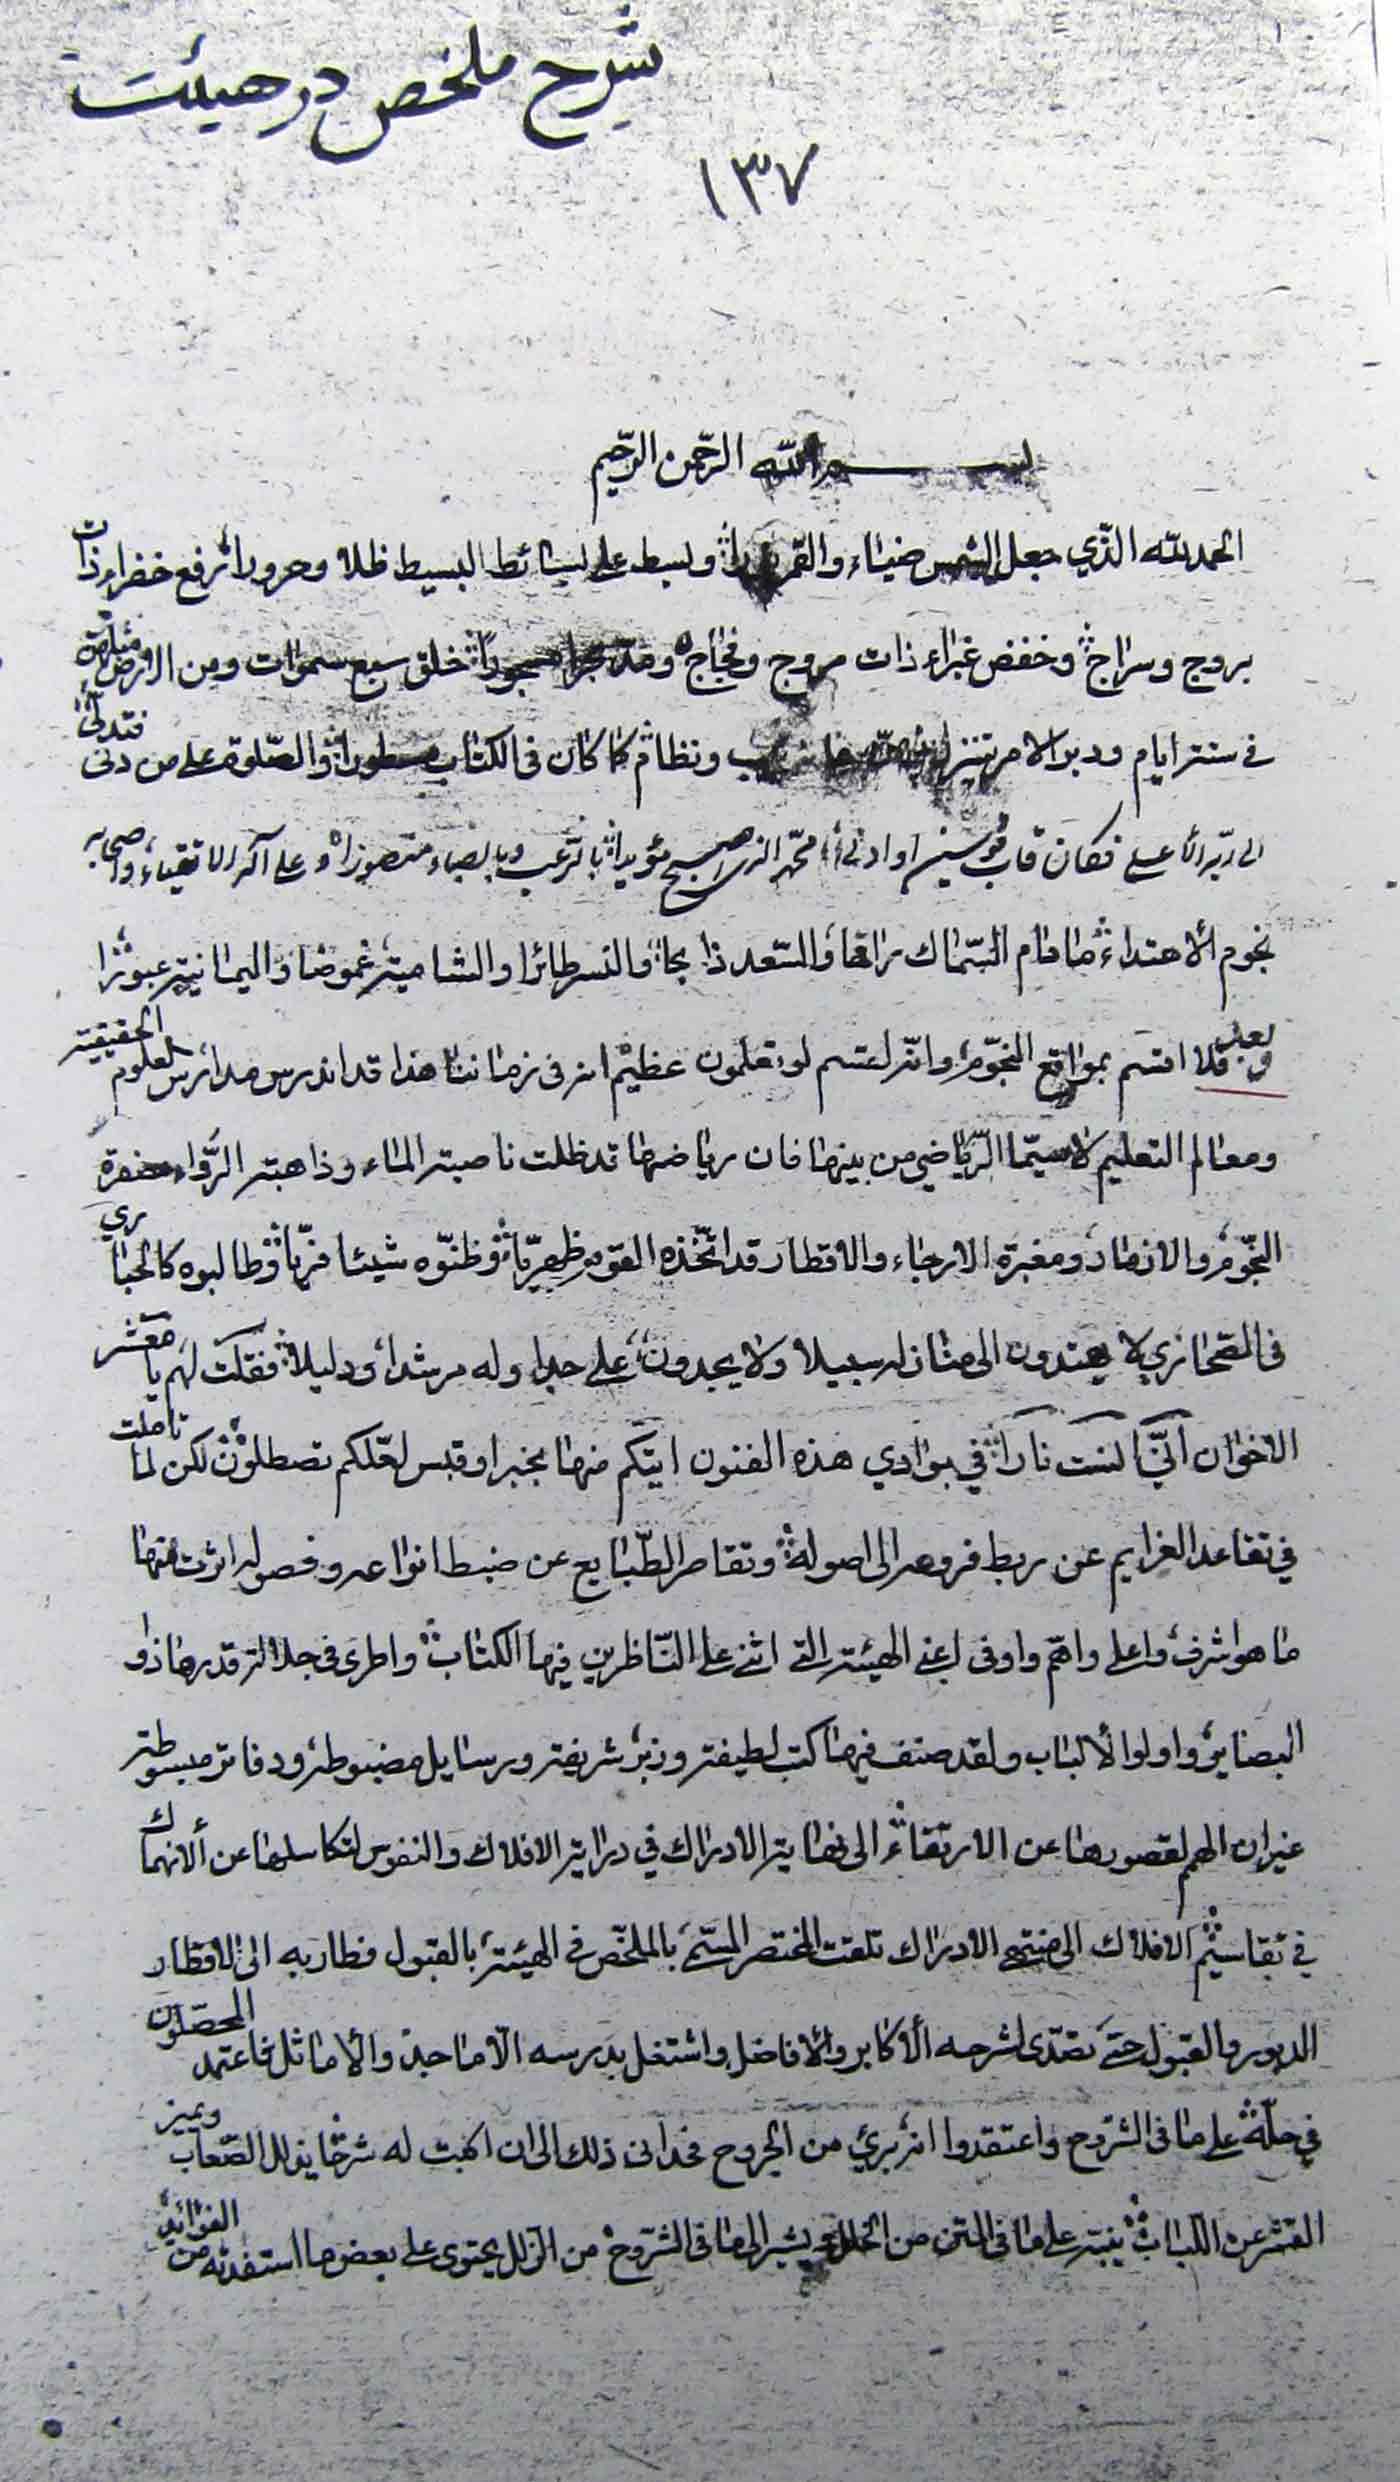 شرح ملخص در هیئت
١٣٧
بسم الله الرّحمن الرّحيم
الحمد لله الذّي جعل الشمس ضياء والقمر نورا وبسط على بسائط البسيط ظلا وحرورا رفع خضراء ذات
بروج وسراج وخفض غبراء ذات مروج وفجاج ومدّ بحرا مسجورا خلق سبع سموات ومن الارض مثلهن
في ستة ايام ودبر الامر يتنزل ونظام كما كان في الكتاب مسطورا والصّلوة على من دنى فتدلّى
الى ربّه الأعلى فكان قاب قوسين او ادنى محمّد الذي اصبح مؤيدا بالرّعب وبالصباء منصورا وعلى آله الاتقياء واصحابه
نجوم الأهتداء ما قام السّماك رامحا والسّعد ذابحا والنسر طائرا والشامية غموضا واليمانية عبورا
وبعد فلا اقسم بمواقع النجوم وانه لقسم لو تعلمون عظيم انه في زماننا هذا قد اندرس مدارس العلوم الحقيقية
ومعالم التعليم لا سيّما الرّياضي من بينها فان رياضها قد ظلت ناضبة الماء وذاهبة الرّواء مصفرة
النجوم والازهار ومغبرة الارجاء والاقطار قد اتّخذه القوم ظهريّا وظنّوه شيئا فريّا وطالبوه كالحباري
في الصّحاري لا يهتدون الى مثاله سبيلا ولا يجدون على جداوله مرشدا ودليلا فقلت لهم يا معشر
الاخوان انّي آنست نارا في بوادي هذه الفنون اتيكم منها بخبر او قبس لعلّكم تصطلون لكن لما تاملت
في تقاعد الغرايم عن ربط فروعه الى اصوله وتقاصر الطّبايع عن ضبط انواعه وفصوله اثرت منها
ما هو اشرف واعلى واهمّ واوفى اعني الهيئة التي اثنى على النّاظرين فيها الكتاب واطرى في جلالة قدرها ذوا
البصاير واولوا الألباب ولقد صنف فيها كتب لطيفة وزبر شريفة ورسايل مضبوطة ودفاتر مبسوطة
غير ان الهمم لقصورها عن الارتقاء الى نهاية الادراك في دراية الافلاك والنفوس لتكاسلها عن ألانهماك
في تقاسيم الافلاك الى منتهى الادراك تلقت المختصر المسمّى بالملخّص في الهيئة بالقبول فطار به الى الاقطار
الدبور والقبول حتى تصدّى لشرحه ألاكابر والافاضل واشتغل بدرسه الأماجد والأماثل فاعتمد المحصّلون
في حلّه على ما في الشروح واعتقدوا انه بريء من الجروح فحداني ذلك الى ان اكتب له شرحا يذلل الصّعاب ويميز
القشر عن اللباب ينبه على ما في المتن من الخلل ويشير الى ما في الشّروح من الزلل يحتوي على بعض ما استفدته من الفوائد